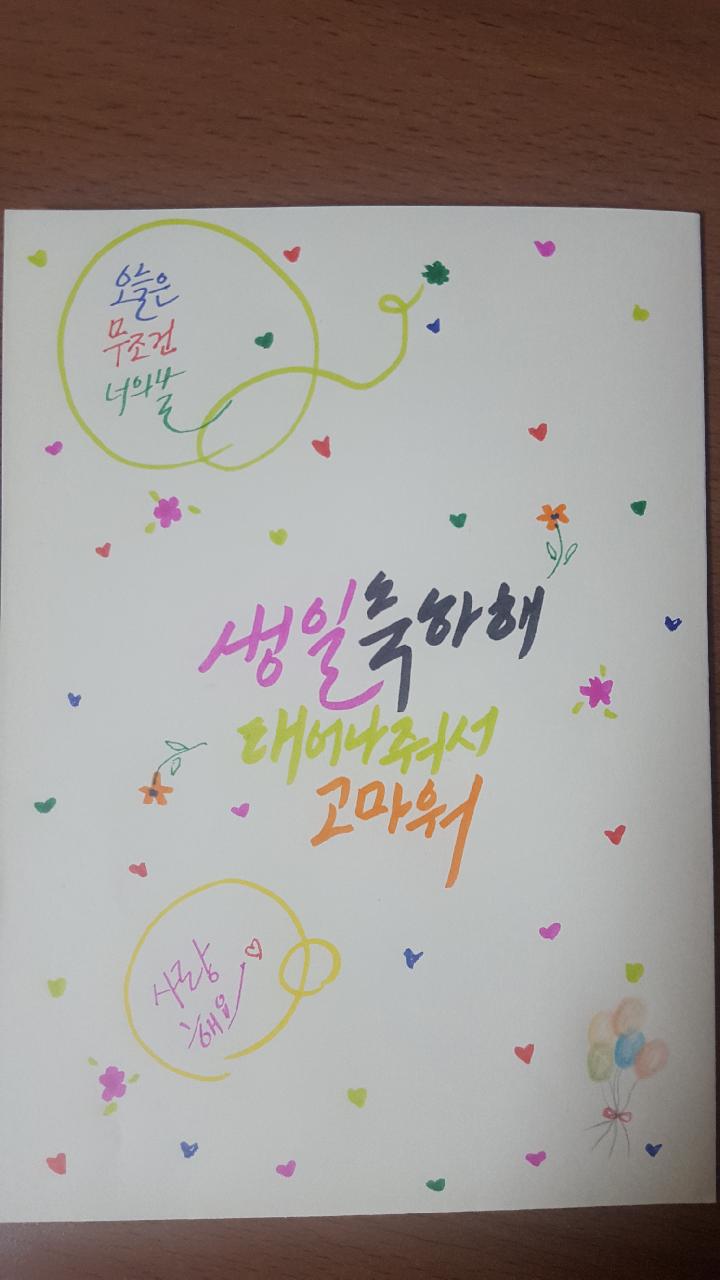 오늘은
무조건
너의날
생일축하해
태어나줘서
고마워
사랑
해요